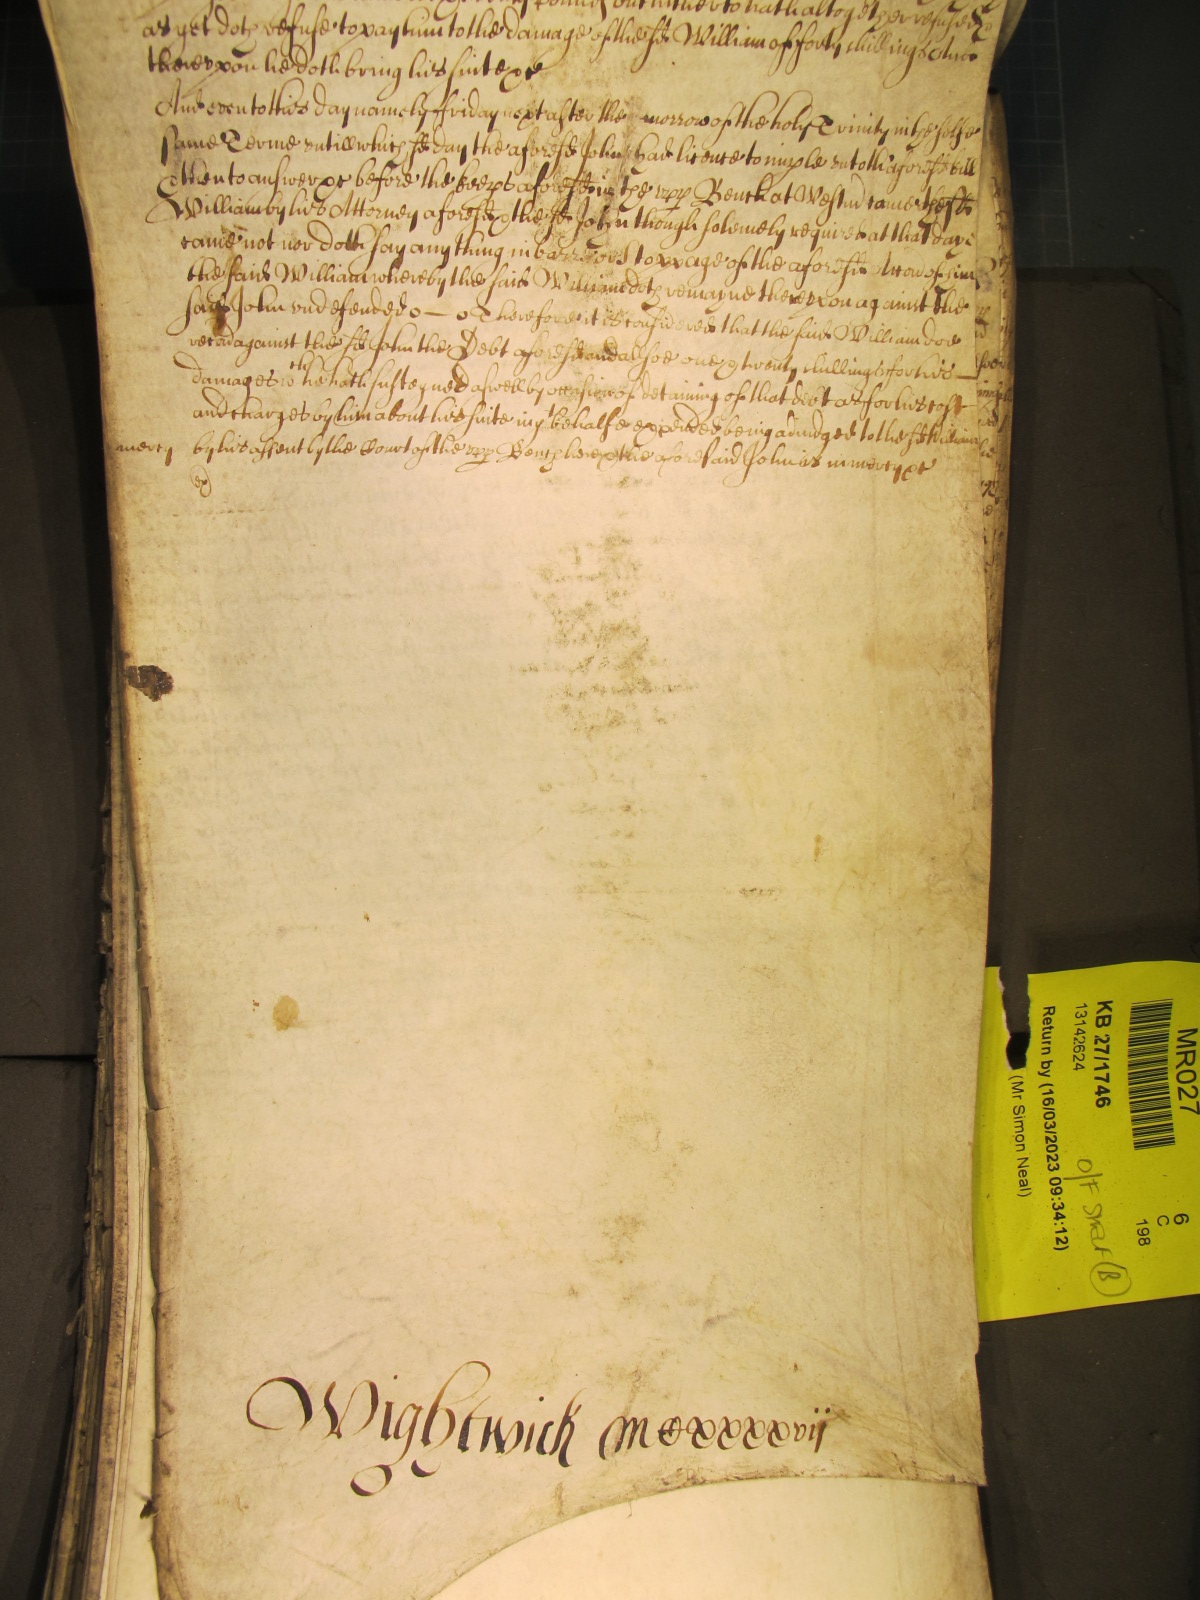 as yet doth refuse to pay him to the damage of the sd William of forty shillings And
thereupon he doth bring his suite &c
And even to this day namely ffriday next after the morrow of the holy Trinity in the selfe
same Terme untill which sd day the aforesd John had licence to imple unto the aforesd bill
& then to answer &c before the keeps aforesd in the upp Bench at Westmr came the sd
William by his Attorney aforesd & the sd John though solemnly required at that day
came not nor doth say any thing in barr of the aforesd Accon of him
the said William whereby the said William doth remayne thereupon against the
said John undefended o — o Therefore it is considered that the said William doe
recover against the sd John the Debt aforesd and alsoe one & twenty shillings for his
damages wch he hath susteyned aswell by occasion of detaining of that debt as for his cost
and charges by him about his suite in yt behalfe expended being adiudged to the sd William
mercy by his assent by the Court of the upp Bench here & the aforesaid John is in mercy &c
Wightwick mcxxxxvii
MR027
6
C
198
KB 27/1746
13142624
O/F Smal (B)
Return by (16/03/2023 09:34:12)
(Mr Simon Neal)